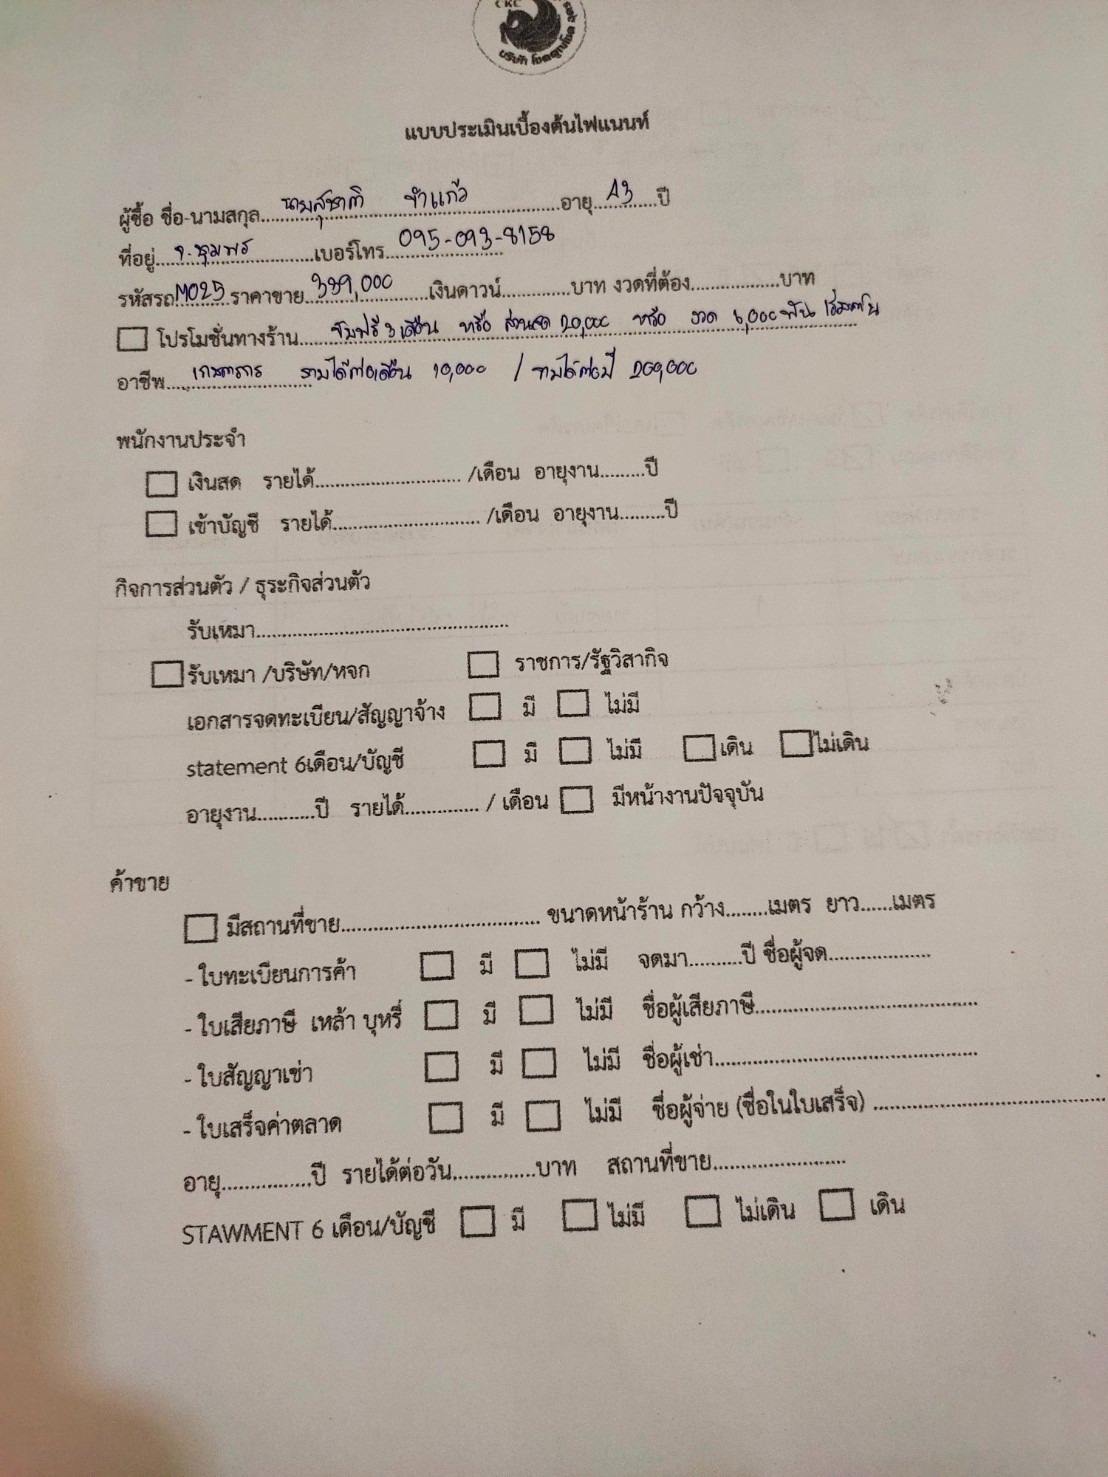 CKC
บริษัท โชคศุกโชค
แบบประเมินเบื้องต้นไฟแนนท์
ผู้ซื้อ ชื่อ-นามสกุล....นายสุชาติ ขำแก้ว....อายุ..43..ปี
ที่อยู่..จ.ชุมพร..เบอร์โทร..095-093-8158
รหัสรถ M025 ราคาขาย..339,000..เงินดาวน์.............บาท งวดที่ต้อง.................บาท
☐ โปรโมชั่นทางร้าน....ขับฟรี 3 เดือน หรือ ส่วนลด 20,000 หรือ งวด 6,000
อาชีพ....เกษตรกร รายได้ต่อเดือน 10,000 / รายได้ต่อปี 200,000
พนักงานประจำ
☐ เงินสด รายได้............................ /เดือน อายุงาน.........ปี
☐ เข้าบัญชี รายได้............................ /เดือน อายุงาน.........ปี
กิจการส่วนตัว / ธุระกิจส่วนตัว
รับเหมา.................................................
☐ รับเหมา /บริษัท/หจก ☐ ราชการ/รัฐวิสากิจ
เอกสารจดทะเบียน/สัญญาจ้าง ☐ มี ☐ ไม่มี
statement 6เดือน/บัญชี ☐ มี ☐ ไม่มี ☐ เดิน ☐ ไม่เดิน
อายุงาน...........ปี รายได้.............. / เดือน ☐ มีหน้างานปัจจุบัน
ค้าขาย
☐ มีสถานที่ขาย...................................... ขนาดหน้าร้าน กว้าง........เมตร ยาว......เมตร
- ใบทะเบียนการค้า ☐ มี ☐ ไม่มี จดมา..........ปี ชื่อผู้จด...................
- ใบเสียภาษี เหล้า บุหรี่ ☐ มี ☐ ไม่มี ชื่อผู้เสียภาษี...........................................
- ใบสัญญาเช่า ☐ มี ☐ ไม่มี ชื่อผู้เช่า..................................................
- ใบเสร็จค่าตลาด ☐ มี ☐ ไม่มี ชื่อผู้จ่าย (ชื่อในใบเสร็จ) ...........................................
อายุ.................ปี รายได้ต่อวัน................บาท สถานที่ขาย.........................
STAWMENT 6 เดือน/บัญชี ☐ มี ☐ ไม่มี ☐ ไม่เดิน ☐ เดิน